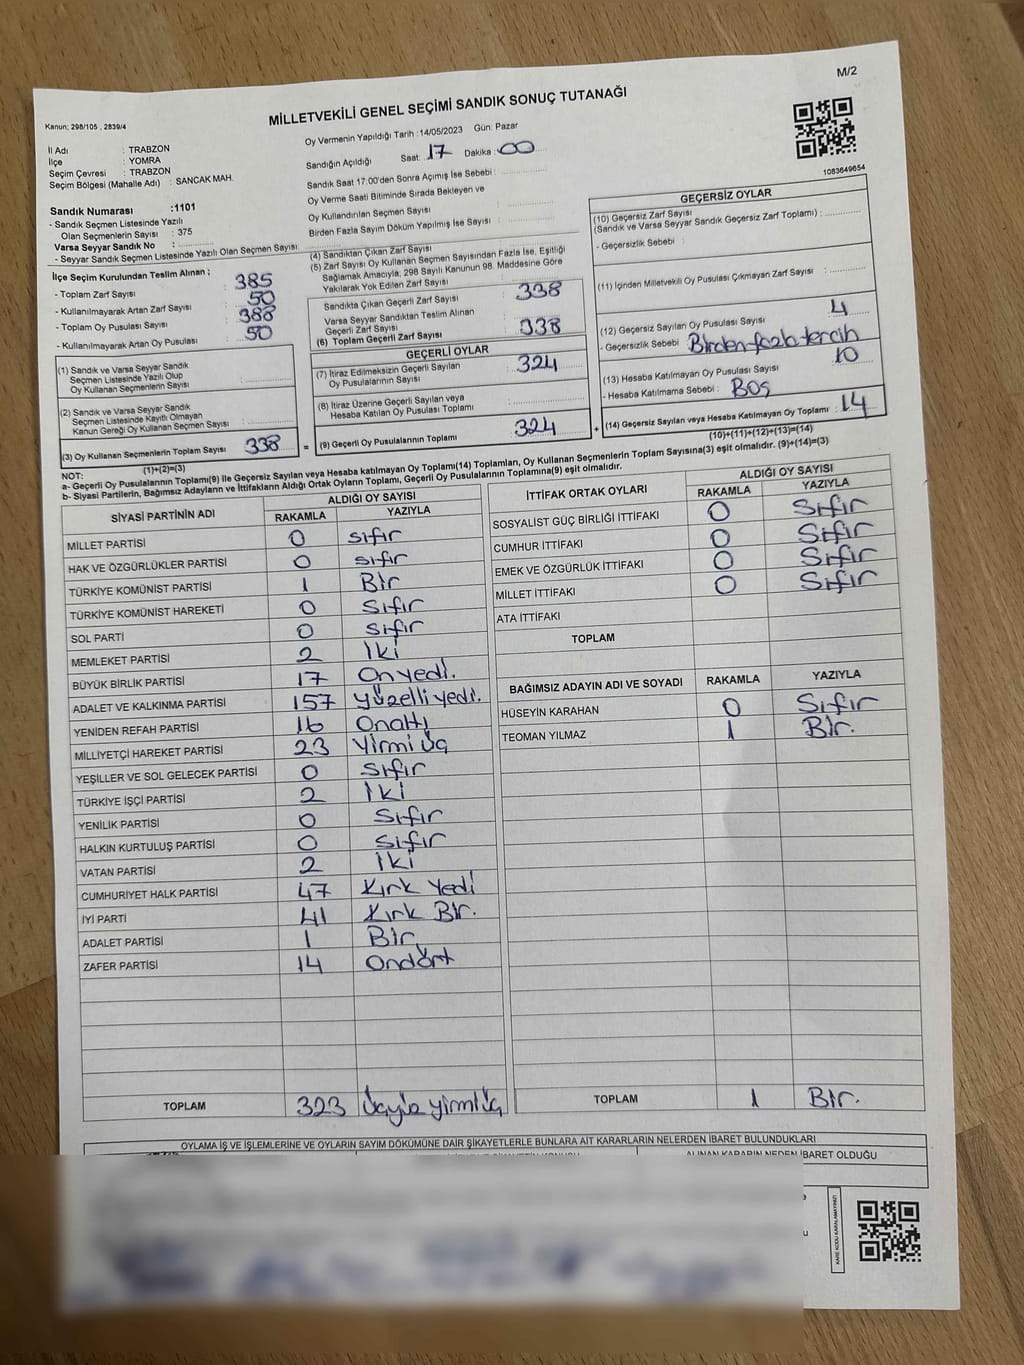 M/2
MİLLETVEKİLİ GENEL SEÇİMİ SANDIK SONUÇ TUTANAĞI
Kanun; 298/105 , 2839/4
İl Adı : TRABZON
İlçe : YOMRA
Seçim Çevresi : TRABZON
Seçim Bölgesi (Mahalle Adı) : SANCAK MAH.
Sandık Numarası :1101
- Sandık Seçmen Listesinde Yazılı
Olan Seçmenlerin Sayısı : 375
Varsa Seyyar Sandık No :
- Seyyar Sandık Seçmen Listesinde Yazılı Olan Seçmen Sayısı:
Oy Vermenin Yapıldığı Tarih : 14/05/2023 Gün: Pazar
Sandığın Açıldığı Saat: 17 Dakika : 00
Sandık Saat 17:00'den Sonra Açımış İse Sebebi :
Oy Verme Saati Bitiminde Sırada Bekleyen ve
Oy Kullandırılan Seçmen Sayısı :
Birden Fazla Sayım Döküm Yapılmış İse Sayısı :
1083649654
İlçe Seçim Kurulundan Teslim Alınan ;
- Toplam Zarf Sayısı : 385
- Kullanılmayarak Artan Zarf Sayısı : 50
- Toplam Oy Pusulası Sayısı : 388
- Kullanılmayarak Artan Oy Pusulası : 50
(1) Sandık ve Varsa Seyyar Sandık
Seçmen Listesinde Yazılı Olup
Oy Kullanan Seçmenlerin Sayısı :
(2) Sandık ve Varsa Seyyar Sandık
Seçmen Listesinde Kayıtlı Olmayan
Kanun Gereği Oy Kullanan Seçmen Sayısı :
(3) Oy Kullanan Seçmenlerin Toplam Sayısı : 338
(1)+(2)=(3)
(4) Sandıktan Çıkan Zarf Sayısı
(5) Zarf Sayısı Oy Kullanan Seçmen Sayısından Fazla İse, Eşitliği
Sağlamak Amacıyla; 298 Sayılı Kanunun 98. Maddesine Göre
Yakılarak Yok Edilen Zarf Sayısı
Sandıkta Çıkan Geçerli Zarf Sayısı : 338
Varsa Seyyar Sandıktan Teslim Alınan
Geçerli Zarf Sayısı
(6) Toplam Geçerli Zarf Sayısı : 338
GEÇERLİ OYLAR
(7) İtiraz Edilmeksizin Geçerli Sayılan
Oy Pusulalarının Sayısı : 324
(8) İtiraz Üzerine Geçerli Sayılan veya
Hesaba Katılan Oy Pusulası Toplamı :
= (9) Geçerli Oy Pusulalarının Toplamı : 324
GEÇERSİZ OYLAR
(10) Geçersiz Zarf Sayısı
(Sandık ve Varsa Seyyar Sandık Geçersiz Zarf Toplamı) :
- Geçersizlik Sebebi :
(11) İçinden Milletvekili Oy Pusulası Çıkmayan Zarf Sayısı :
(12) Geçersiz Sayılan Oy Pusulası Sayısı : 4
- Geçersizlik Sebebi : Birden fazla tercih
(13) Hesaba Katılmayan Oy Pusulası Sayısı : 10
- Hesaba Katılmama Sebebi : Boş
+ (14) Geçersiz Sayılan veya Hesaba Katılmayan Oy Toplamı : 14
(10)+(11)+(12)+(13)=(14)
NOT:
a- Geçerli Oy Pusulalarının Toplamı(9) İle Geçersiz Sayılan veya Hesaba katılmayan Oy Toplamı(14) Toplamları, Oy Kullanan Seçmenlerin Toplam Sayısına(3) eşit olmalıdır. (9)+(14)=(3)
b- Siyasi Partilerin, Bağımsız Adayların ve İttifakların Aldığı Ortak Oyların Toplamı, Geçerli Oy Pusulalarının Toplamına(9) eşit olmalıdır.
SİYASİ PARTİNİN ADI ALDIĞI OY SAYISI
RAKAMLA YAZIYLA
MİLLET PARTİSİ 0 sıfır
HAK VE ÖZGÜRLÜKLER PARTİSİ 0 sıfır
TÜRKİYE KOMÜNİST PARTİSİ 1 Bir
TÜRKİYE KOMÜNİST HAREKETİ 0 Sıfır
SOL PARTİ 0 sıfır
MEMLEKET PARTİSİ 2 İki
BÜYÜK BİRLİK PARTİSİ 17 Onyedi.
ADALET VE KALKINMA PARTİSİ 157 Yüzelliyedi.
YENİDEN REFAH PARTİSİ 16 Onaltı
MİLLİYETÇİ HAREKET PARTİSİ 23 Yirmi üç
YEŞİLLER VE SOL GELECEK PARTİSİ 0 sıfır
TÜRKİYE İŞÇİ PARTİSİ 2 İki
YENİLİK PARTİSİ 0 Sıfır
HALKIN KURTULUŞ PARTİSİ 0 sıfır
VATAN PARTİSİ 2 İki
CUMHURİYET HALK PARTİSİ 47 Kırk Yedi
İYİ PARTİ 41 Kırk Bir.
ADALET PARTİSİ 1 Bir
ZAFER PARTİSİ 14 Ondört
TOPLAM 323 Üçyüz yirmi üç
İTTİFAK ORTAK OYLARI ALDIĞI OY SAYISI
RAKAMLA YAZIYLA
SOSYALİST GÜÇ BİRLİĞİ İTTİFAKI 0 Sıfır
CUMHUR İTTİFAKI 0 Sıfır
EMEK VE ÖZGÜRLÜK İTTİFAKI 0 Sıfır
MİLLET İTTİFAKI 0 Sıfır
ATA İTTİFAKI
TOPLAM
BAĞIMSIZ ADAYIN ADI VE SOYADI RAKAMLA YAZIYLA
HÜSEYİN KARAHAN 0 Sıfır
TEOMAN YILMAZ 1 Bir.
TOPLAM 1 Bir.
OYLAMA İŞ VE İŞLEMLERİNE VE OYLARIN SAYIM DÖKÜMÜNE DAİR ŞİKAYETLERLE BUNLARA AİT KARARLARIN NELERDEN İBARET BULUNDUKLARI
ALINAN KARARIN NEDEN İBARET OLDUĞU
KARE KODU KARALAMAYINIZ!